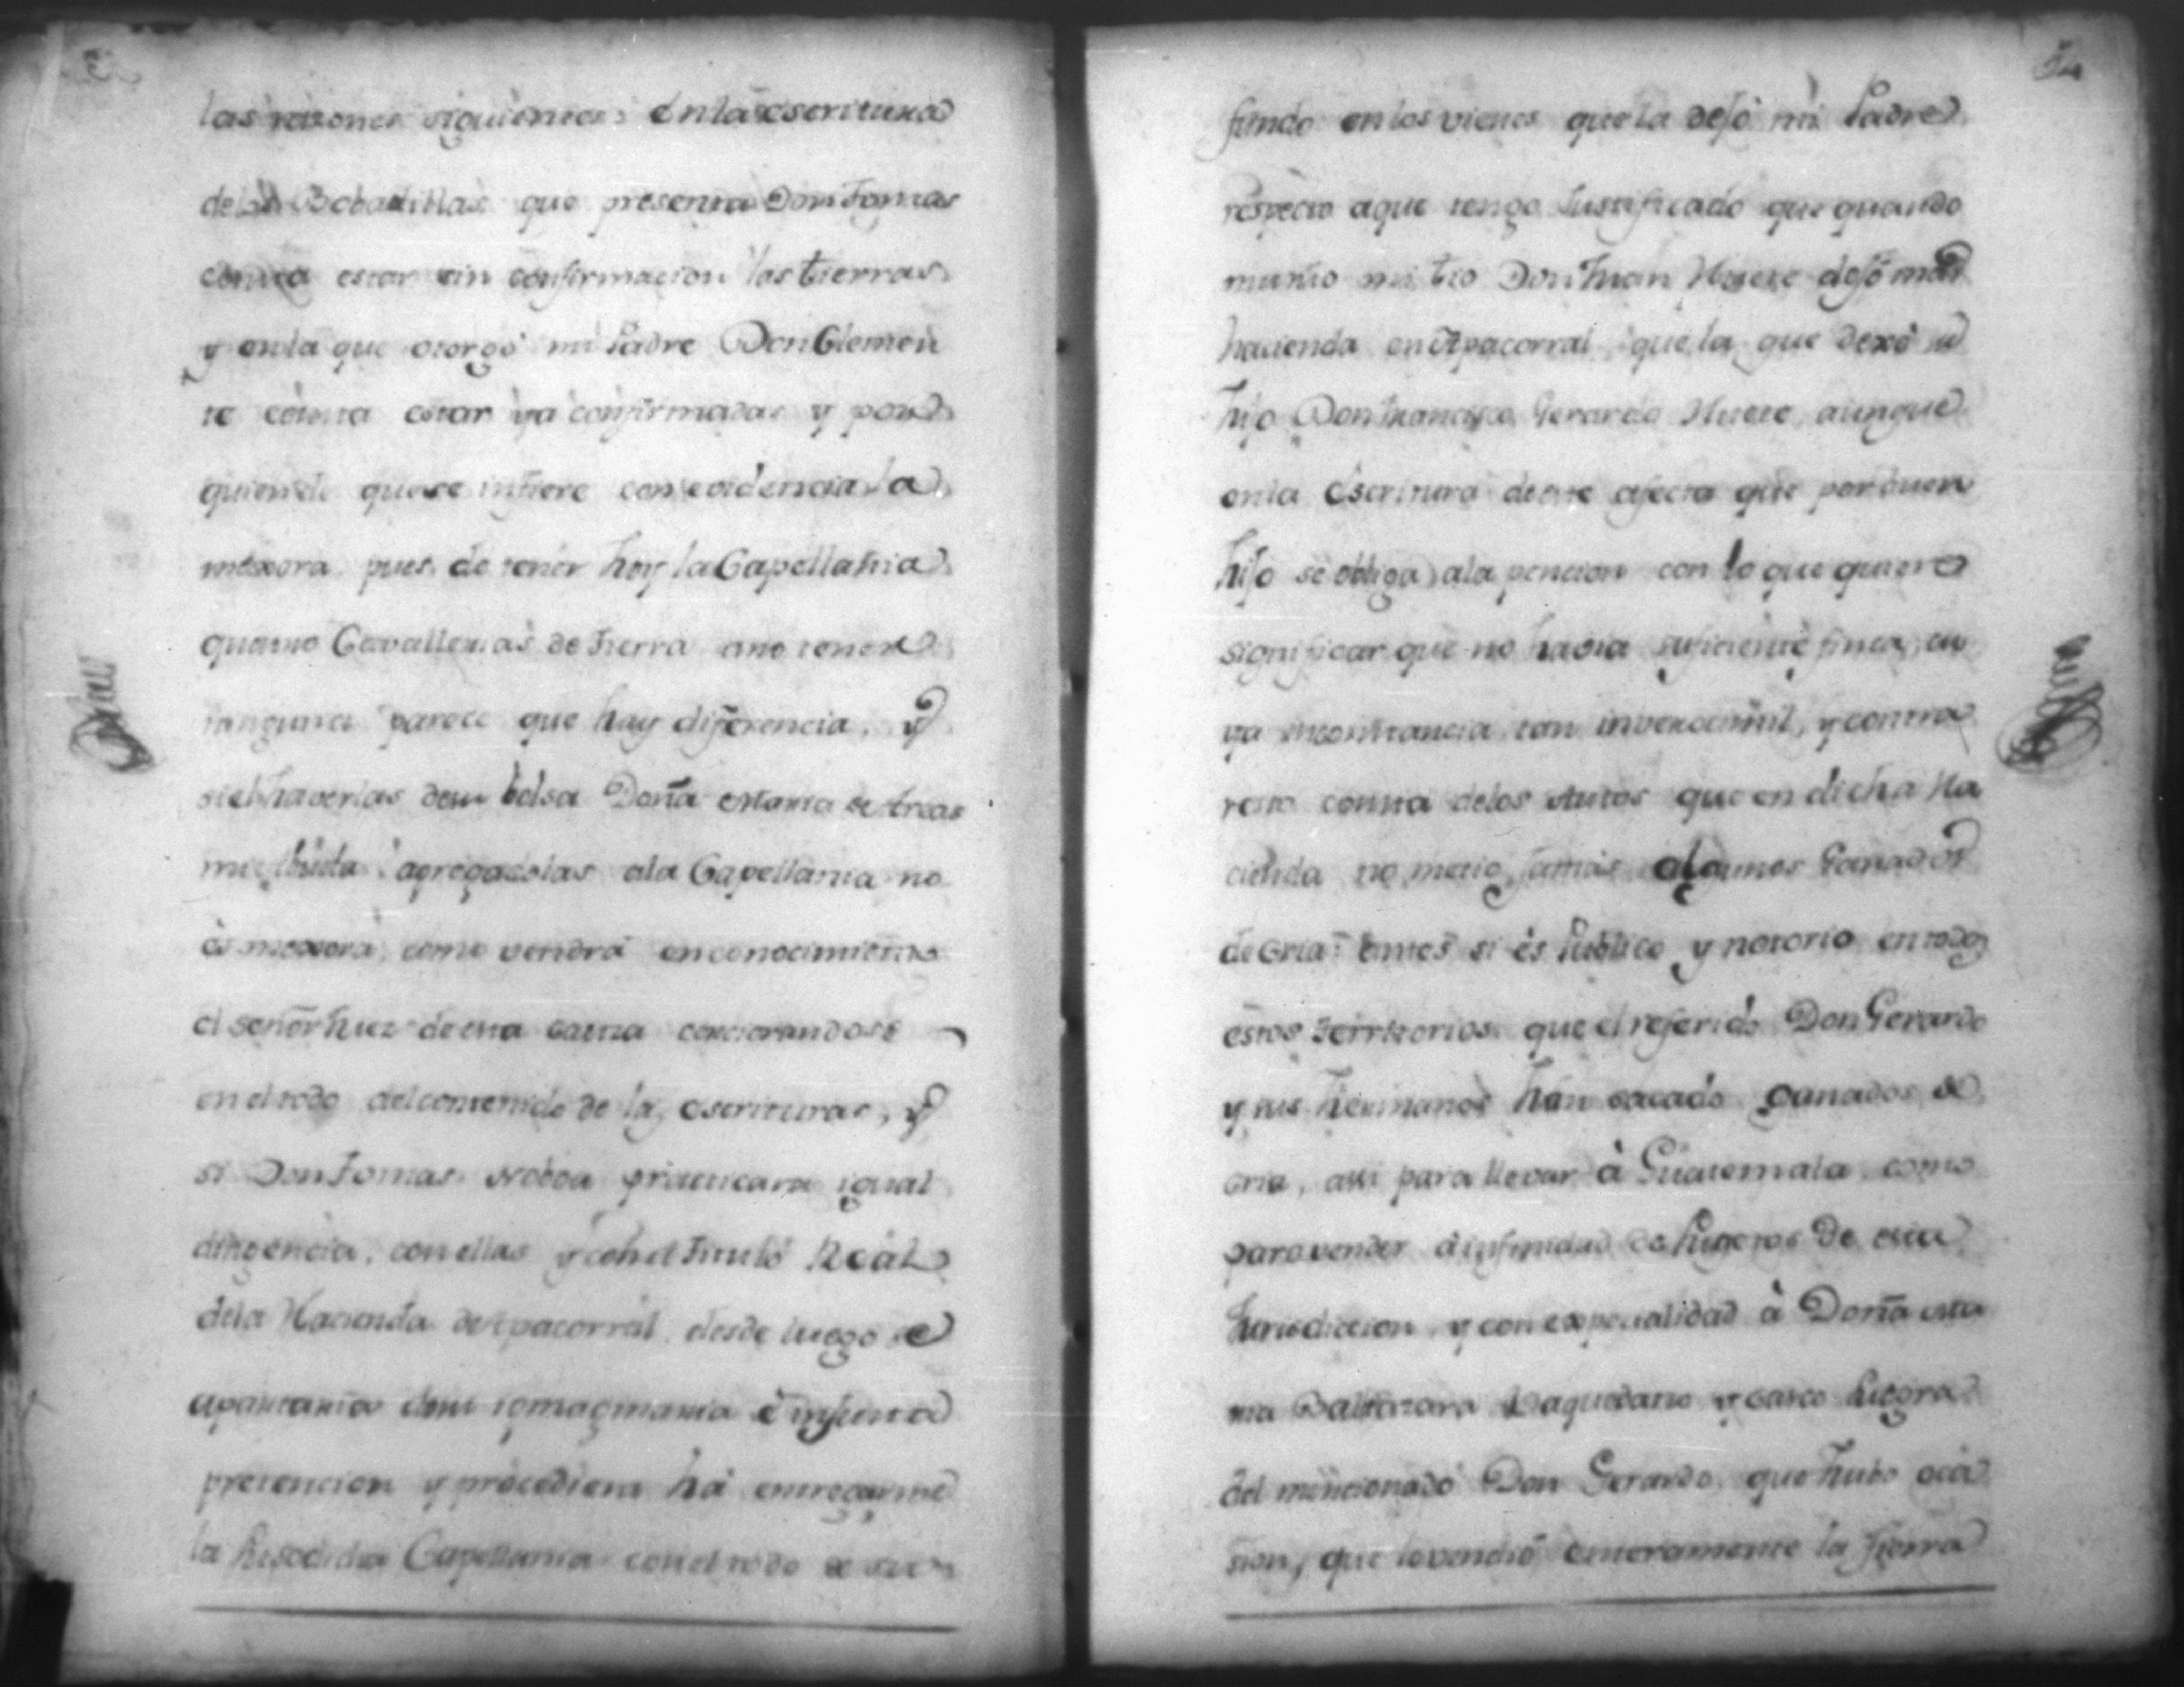 las razones siguientes: en la escritura
de las Bobadillas que presenta Don Tomas
consta estar sin confirmacion las tierras
y en la que otorgó mi Padre Don Clemen
te consta estar ya confirmadas y por
que se infiere con evidencia la
mexora pues de tener hoy la Capellania
quatro Cavallerias de tierra a no tener
ninguna parece que hay diferencia, y
si el haverlas de su bolsa Doña
agregadolas a la Capellania no
es mexora, como vendrá en conocimiento
el señor Juez de esta causa
en el todo del contenido de las escrituras, y
si Don Tomas practicara igual
diligencia, con ellas y con el Titulo Real
de la Hacienda de Apacorral desde luego se
apartaria de su ygmaginaria è injusta
pretencion y procediera há entregarme
la susodicha Capellania con el todo de su
54
fundo en los vienes que la dejó mi Padre
respecto a que tengo Justificado que quando
murió mi tio Don Juan Huete dejó mas
hacienda en Apacorral que la que dexó su
hijo Don Francisco Gerardo Huete, aunque
en la Escritura de este afecta que por buen
hijo se obliga a la pencion con lo que quiere
significar que no havia suficiente finca, cu
ya incontrancia tan inverocimil, y contra
resto consta de los Autos que en dicha Ha
cienda no metio jamas algunos Ganados
de cria: antes si es Publico y notorio en todos
estos territorios que el referido Don Gerardo
y sus hermanos han sacado ganados de
cria, assi para llevar à Guatemala, como
para vender à infinidad de Sugetos de esta
Jurisdiccion, y con expecialidad à Doña Ma
ria Baltazara Baquedano y Casco Suegra
del mencionado Don Gerardo que hubo oca
sion, que lo vendió enteramente la Tierra